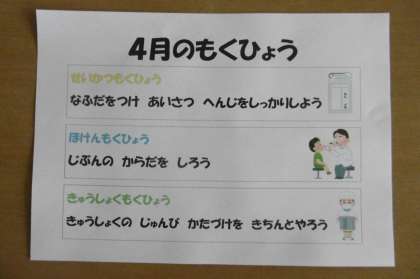 4月のもくひょう
せいかつもくひょう
なふだをつけ あいさつ へんじをしっかりしよう
ほけんもくひょう
じぶんの からだを しろう
きゅうしょくもくひょう
きゅうしょくの じゅんび かたづけを きちんとやろう